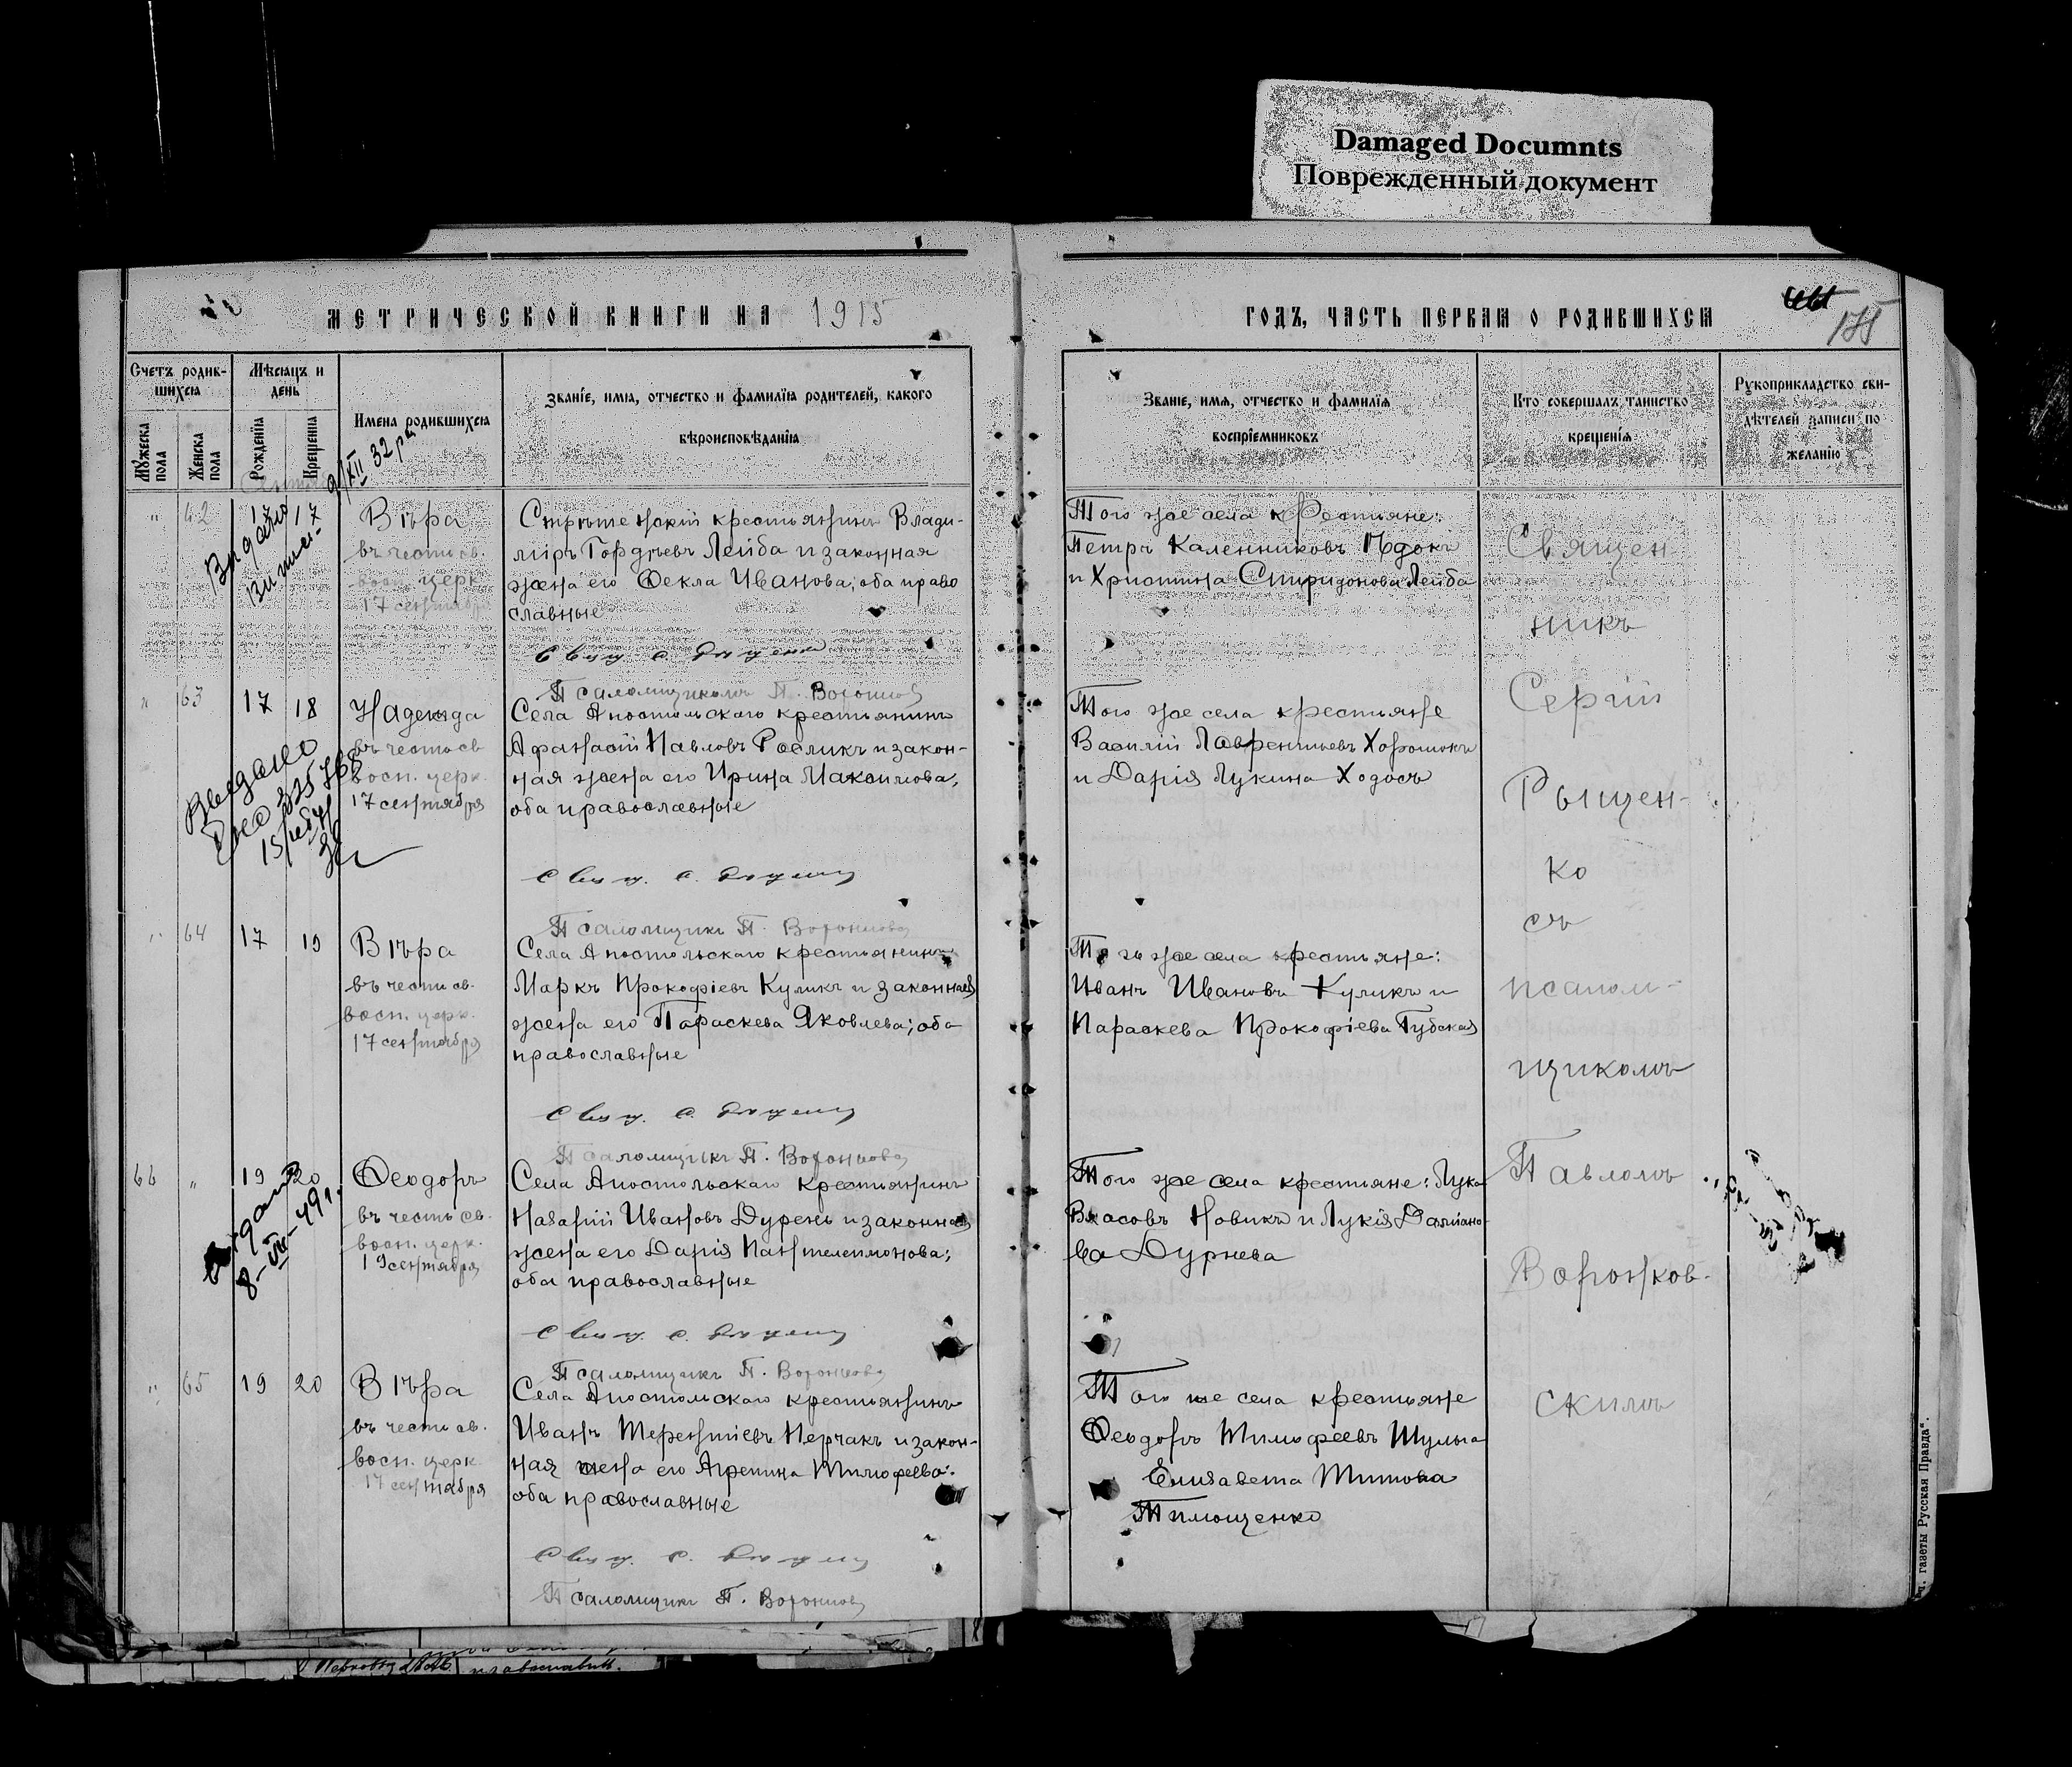 Damaged Documnts
Поврежденный документ
МЕТРИЧЕСКОЙ КНИГИ НА 1915
Счетъ родив-
шихся
Мѣсяцъ и
день
Имена родившихся
Званіе, имя, отчество и фамилія родителей, какого
вѣроисповѣданія
Мужеска
пола
Женска
пола
Рожденія
Крещенія
9/XII 32 р
" 62 17 17 Вѣра
въ честь св.
восп. церк.
17 сентября
Видано
Витяг
Стрѣтенскій крестьянинъ Влади-
міръ Гордѣевъ Лейба и законная
жена его Ѳекла Иванова; оба право
славные
Псаломщикомъ П. Воронков
" 63 17 18 Надежда
въ честь св
восп. церк.
17 сентября
Выдано
Села Апостольскаго крестьянинъ
Афанасій Павловъ Росликъ и закон-
ная жена его Ирина Максимова,
оба православные
Псаломщикъ П. Воронков
" 64 17 19 Вѣра
въ честь св.
восп. церк.
17 сентября
Села Апостольскаго крестьянинъ
Маркъ Прокофіевъ Куликъ и законная
жена его Параскева Яковлева; оба
православные
Псаломщикъ П. Воронков
66 " 19 20 Ѳеодоръ
въ честь св.
восп. церк.
19 сентября
8-VII-49 г.
Села Апостольскаго крестьянинъ
Назарій Ивановъ Дурень и законная
жена его Дарія Пантелеимонова;
оба православные
Псаломщикъ П. Воронков
" 65 19 20 Вѣра
въ честь св.
восп. церк
17 сентября
Села Апостольскаго крестьянинъ
Иванъ Терентіевъ Перчакъ и закон-
ная жена его Агрепина Тимофеева:
оба православные
Псаломщикъ П. Воронков
ГОДЪ, ЧАСТЬ ПЕРВАЯ О РОДИВШИХСЯ
Званіе, имя, отчество и фамилія
воспріемниковъ
Кто совершалъ таинство
крещенія
Рукоприкладство сви-
дѣтелей записи по
желанію
Того же села крестьяне:
Петръ Каленниковъ
и Христина Спиридонова Лейба
Того же села крестьяне
Василій Лаврентьевъ Хорошокъ
и Дарія Лукина Ходосъ
Того же села крестьяне:
Иванъ Ивановъ Куликъ и
Параскева Прокофіева Губская
Того же села крестьяне: Лука
Власовъ Новикъ и Лукія Даміано-
ва Дурнева
Того же села крестьяне
Ѳеодоръ Тимофеевъ Шульга
Елизавета Титова
Тимощенко
Священ-
никъ
Сергій
Рыщен-
ко
съ
псалом-
щикомъ
Павломъ
Воронков-
скимъ
газеты Русская Правда".